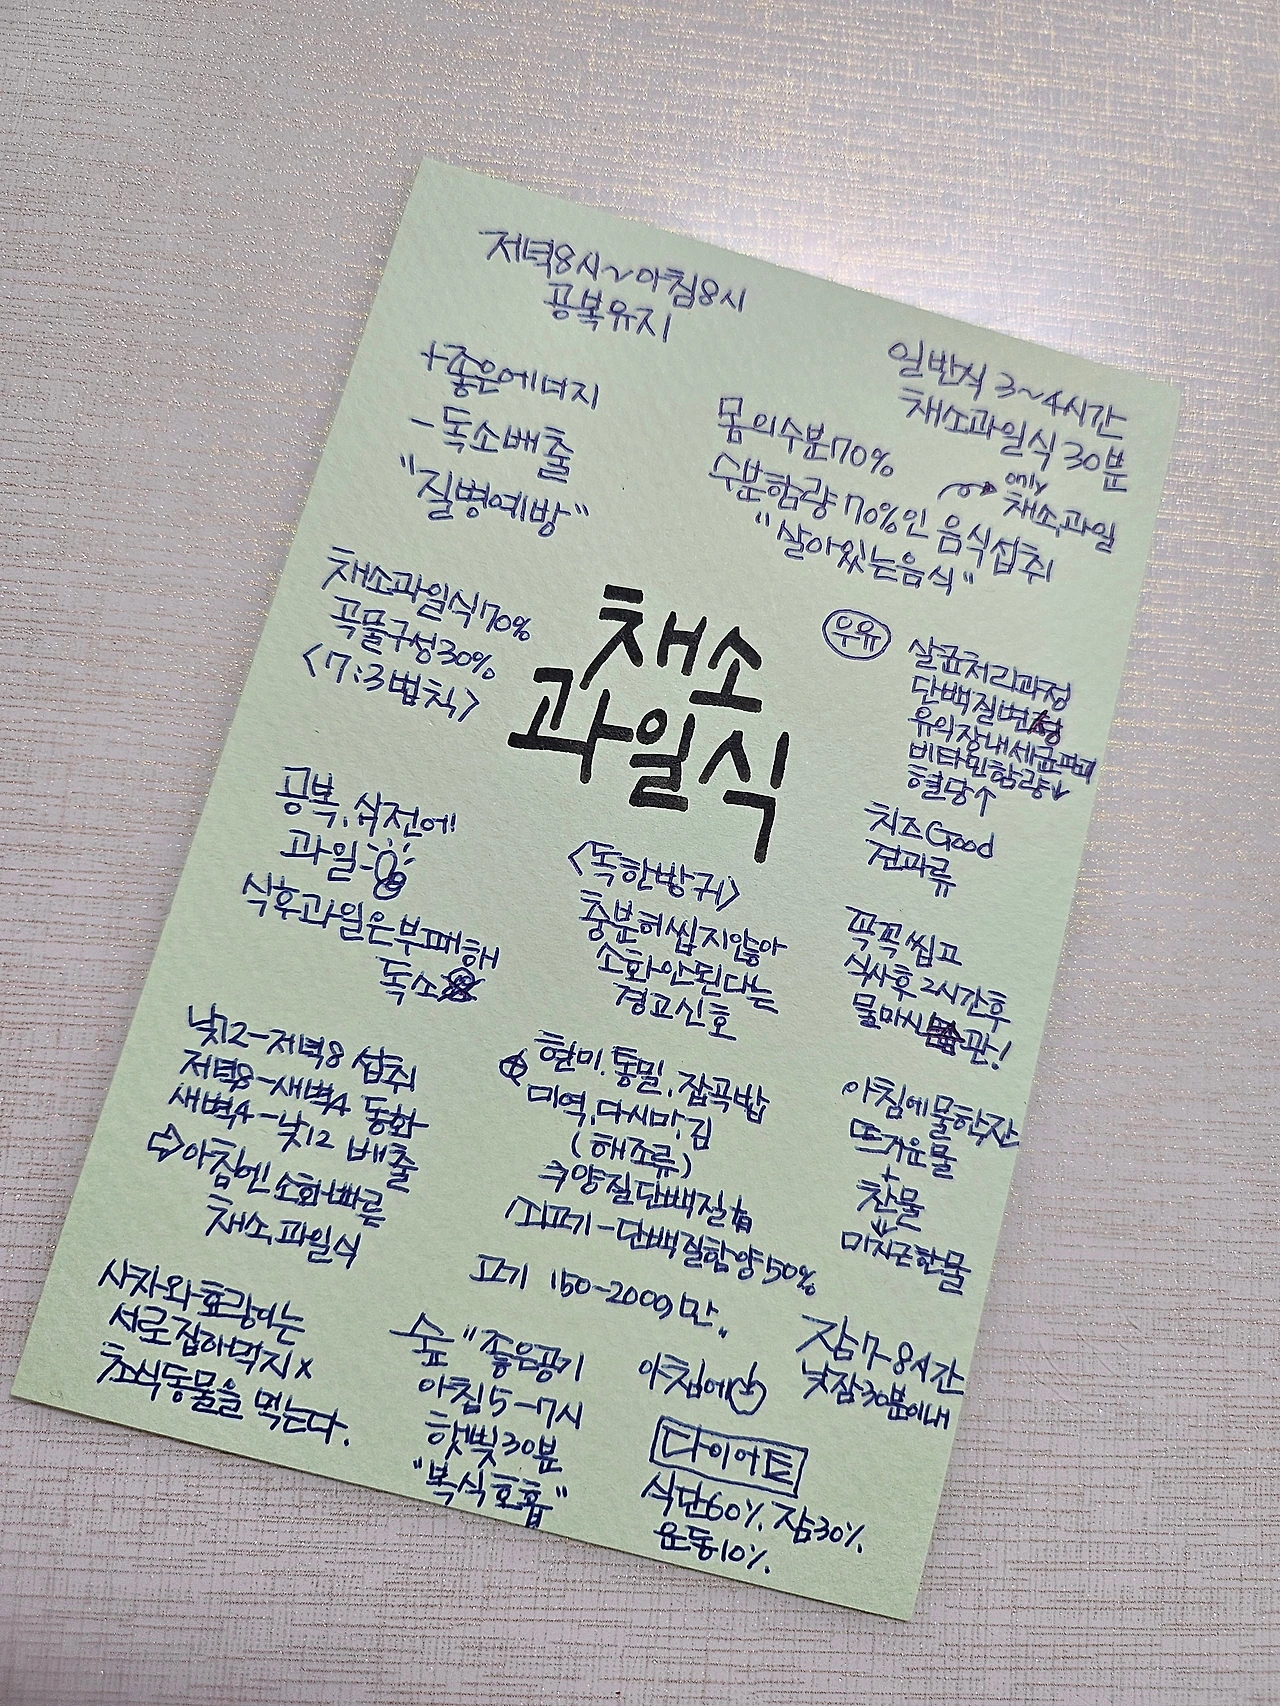 저녁8시~아침8시
공복유지
+좋은에너지
-독소배출
"질병예방"
일반식 3~4시간
채소과일식 30분
몸의수분70%
수분함량 70%인 음식섭취
only
채소,과일
"살아있는음식"
채소과일식70%
곡물구성30%
<7:3법칙>
채소
과일식
우유
살균처리과정
단백질변성
유익장내세균파괴
비타민함량↓
혈당↑
치즈Good
견과류
공복, 식전에!
과일
식후과일은부패해
독소
<독한방귀>
충분히씹지않아
소화안된다는
경고신호
꼭꼭씹고
식사후 2시간후
물마시는 습관!
낮12-저녁8 섭취
저녁8-새벽4 동화
새벽4-낮12 배출
⇨아침엔 소화빠른
채소,과일식
현미.통밀.잡곡밥
미역,다시마,김
(해조류)
양질단백질
고기-단백질함양50%
고기 150-200g만.
아침에물한잔
뜨거운물
+
찬물
↓
미지근한물
사자와호랑이는
서로잡아먹지x
초식동물을 먹는다.
숲 "좋은공기
아침5-7시
햇빛30분
"복식호흡"
아침에
잠7-8시간
낮잠30분이내
다이어트
식단60%, 잠30%,
운동10%.